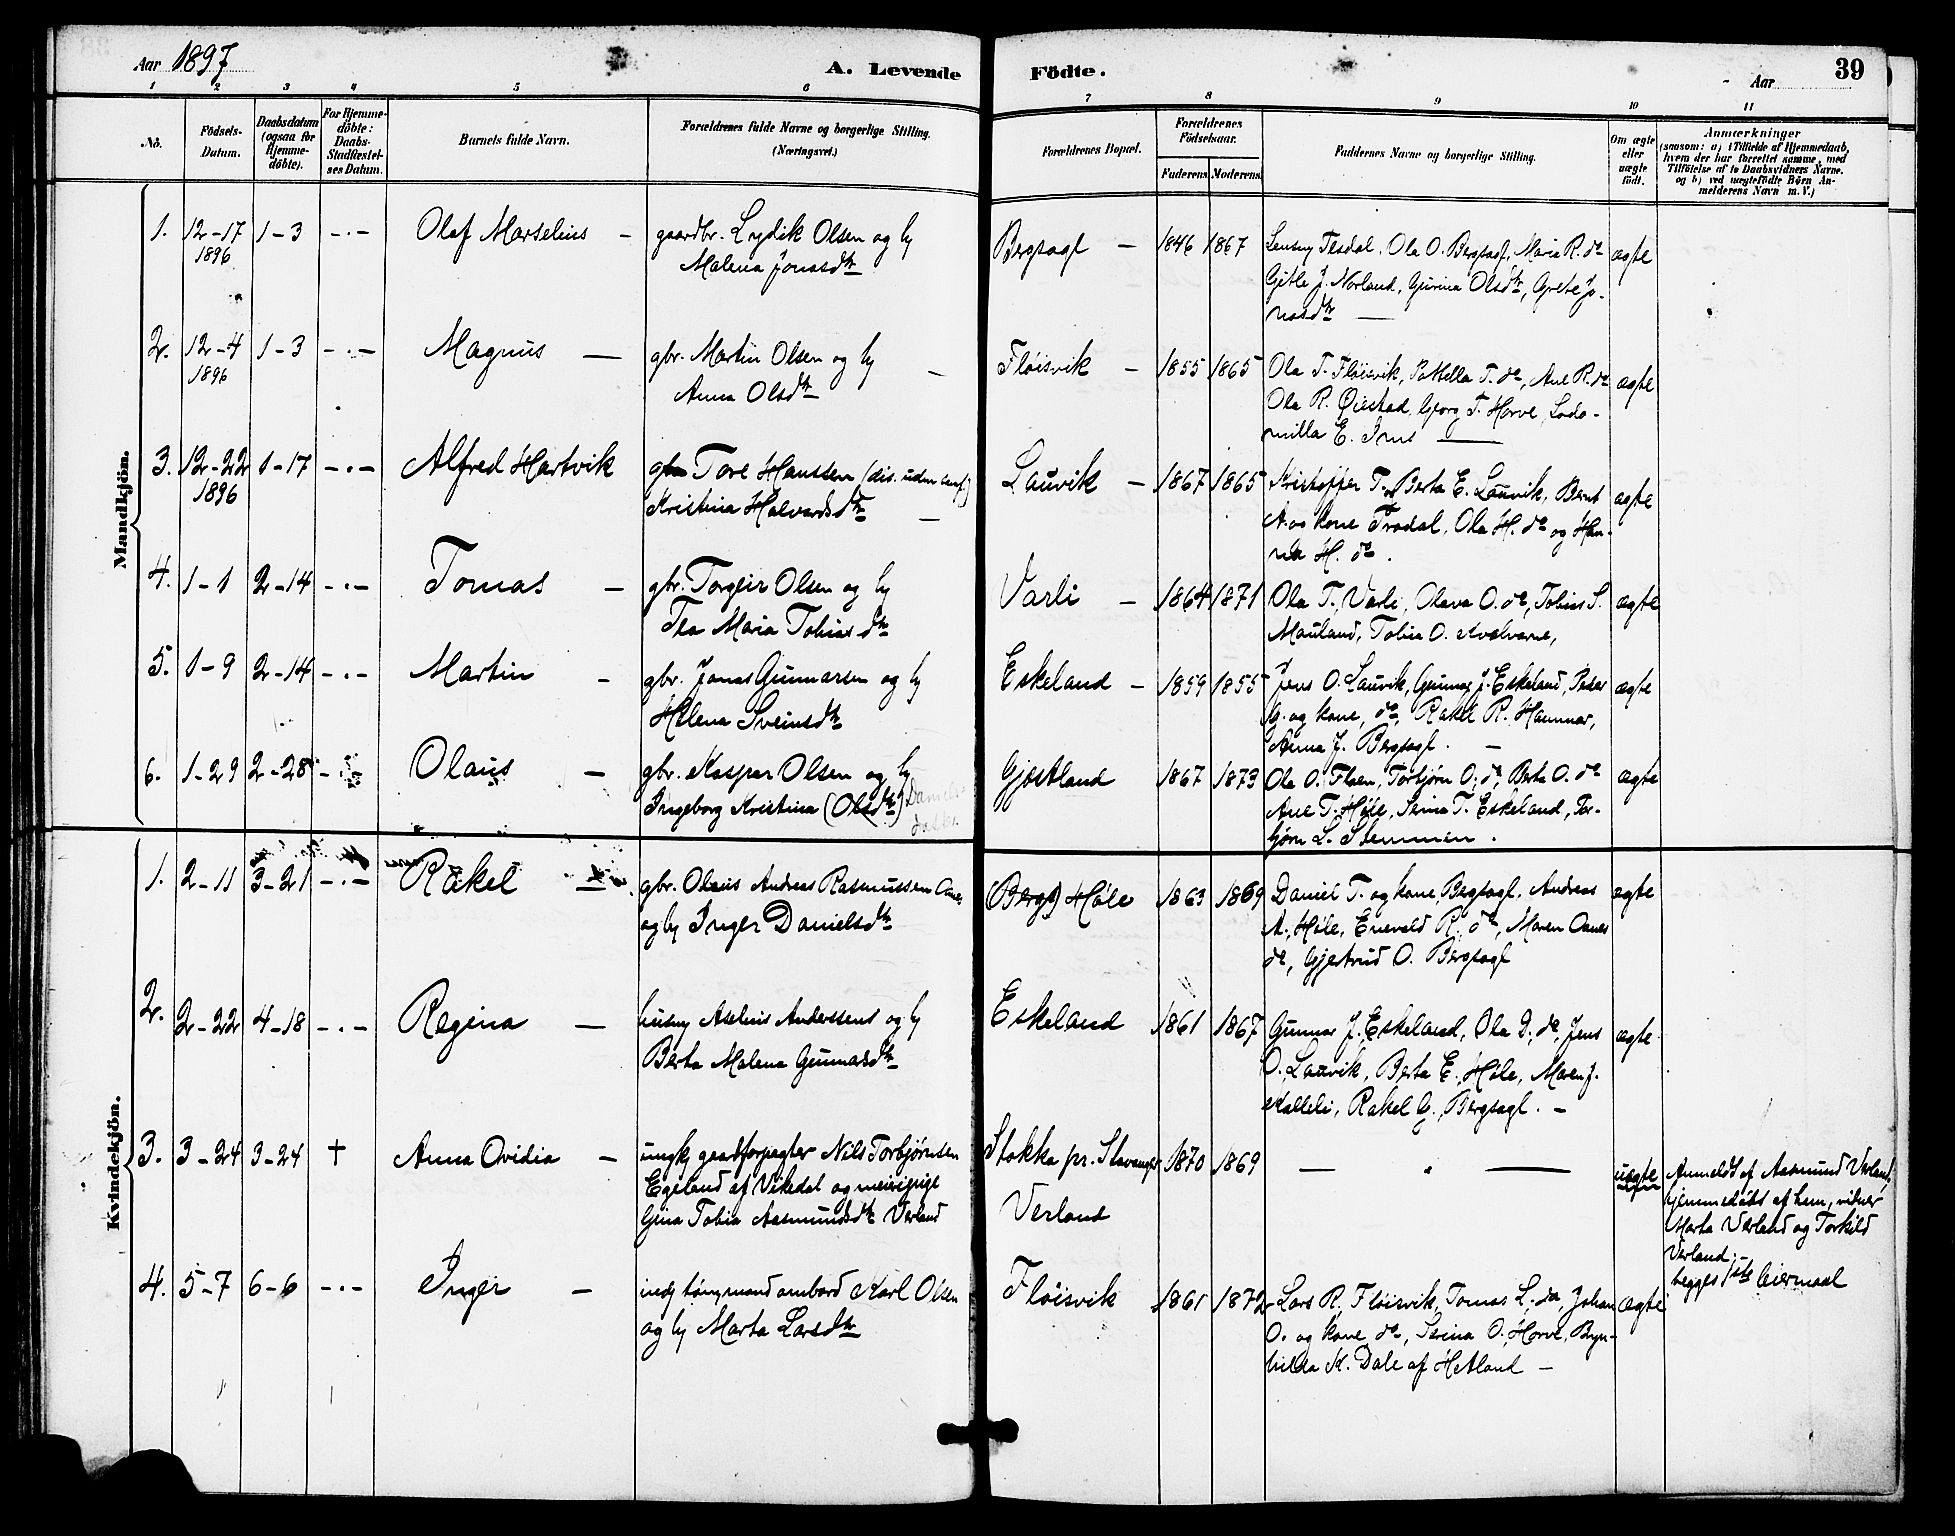 Aar 1897
A. Levende
Födte.
Aar
39
1 2 3 4 5 6 7 8 9 10 11
No.
Födsels-
Datum.
Daabsdatum
(ogsaa for
Hjemme-
döbte).
For Hjemme-
döbte:
Daabs-
Stadfæstel-
ses Datum.
Barnets fulde Navn.
Forældrenes fulde Navne og borgerlige Stilling.
(Næringsvei.)
Forældrenes Bopæl.
Forældrenes
Födselsaar.
Faderens Moderens
Faddernes Navne og borgerlige Stilling.
Om ægte
eller
uægte
födt.
Anmærkninger
(saasom: a) i Tilfælde af Hjemmedaab,
hvem der har forrettet samme, med
Tilföielse af to Daabsvidners Navne,
og b) ved uægtefödte Börn An-
melderens Navn m. V.)
Mandkjön.
1. 12-17 1-3 -·- Olaf Marselius - gaardbr. Lydik Olsen og hu
1896
Malena Jonasdtr
Bergsagl - 1846 1867
Tesdal. Ola O. Bergsagl, Maria R. do
Gitle J. Norland, Gurina Olsdtr, Grete Jo-
nasdtr —
ægte
2. 12-4 1-3 -·- Magnus — gbr. Martin Olsen og hu
1896
Anna Olsdtr
Fløisvik - 1855 1865
Ola T. Fløisvik, T. do, Ane R. do
Ola R. Øiestad, Georg T. Horve, Lodo-
milla E. Ims —
ægte
3. 12-22 1-17 -·- Alfred Hartvik Tore Hanssen (dis. uden anf.)
1896
Kristina Halvardsdtr —
Lauvik - 1867 1865
Kristoffer T. Berta E. Lauvik, Bernt
A. og kone Frodal, Ola H. do og Han-
na H. do.
ægte
4. 1-1 2-14 -·- Tomas - gbr. Torgeir Olsen og hu
Tea Maria Tobiasdtr
Varli - 1864 1871
Ola T. Varli, Olava O. do, Tobias S.
Mauland, Tobia O.
ægte
5. 1-9 2-14 -·- Martin - gbr. Jonas Gunnarsen og hu
Helena Sveinsdtr
Eskeland - 1859 1855
Jens O. Lauvik, Gunnar J. Eskeland, Peder
G. og kone, do, Rakel R. Hammar,
Anna J. Bergsagl. -
ægte
6. 1-29 2-28 -·- Olaus - gbr. Kaspar Olsen og hu
Ingeborg Kristina (Olsdtr)
Gjøstland 1867 1873
Ola O. Floen, Torbjørn O. do, Berta O. do
Ane T. Høle, Serina T. Eskeland, Tor-
bjørn L. Stemmen.
ægte
Kvindekjön.
1. 2-11 3-21 -·- Rakel - gbr. Olaus Andreas Rasmussen
og hu Inger Danielsdtr
(Bergs) Høle 1863 1869
Daniel T. og kone Bergsagl. Andreas
A. Høle, Enevald R. do, Maren Oanes
do, Gjertrud O. Bergsagl
ægte
2. 2-22 4-18 -·- Regina — husmj Aselius Anderssens og hu
Berta Malena Gunnarsdtr
Eskeland 1861 1867
Gunnar J. Eskeland, Ola D. do, Jens
O. Lauvik, Berta E. Høle, Maren J.
Kalleli, Rakel G. Bergsagl. -
ægte
3. 3-24 3-24 † Anna Ovidia - ungk gaardforpagter Nils Torbjørnsen
Egeland af Vikedal og meieripige
Gina Tobia Aasmundsdtr Verland
Stokka pr. Stavanger 1870 1869
Verland
— · —
uægte
Anmeldt af Aasmund Verland,
hjemmedøbt af ham, vidner
Marta Verland og Torkild
Verland;
begges 1ste leiermaal
4. 5-7 6-6 -·- Inger - ombord Karl Olsen
og hu Marta Larsdtr
Fløisvik 1861 1872
Lars R. Fløisvik, Tomas L. do, Johan
O. og kone do, Serina O. Horve, Bryn-
hilda K. Dale af Hetland -
ægte